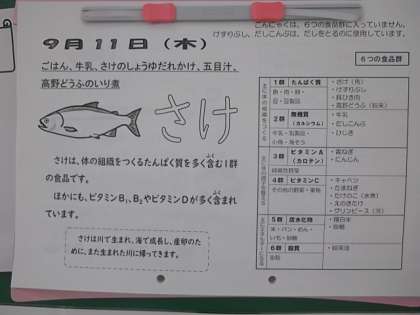 こんにゃくは、6つの食品群に入っていません。
けずりぶし、だしこんぶは、だしをとるのに使用しています。
9月11日（木）
ごはん、牛乳、さけのしょうゆだれかけ、五目汁、
高野どうふのいり煮
さけ
さけは、体の組織をつくるたんぱく質を多く含む1群
の食品です。
ほかにも、ビタミンB₁、B₂やビタミンDが多く含まれ
ています。
さけは川で生まれ、海で成長し、産卵のた
めに、また生まれた川に帰ってきます。
6つの食品群
1群 たんぱく質
魚・肉・卵・
豆・豆製品
・さけ（魚）
・けずりぶし
・鶏ひき肉
・高野どうふ（粉末）
2群 無機質
（カルシウム）
牛乳・乳製品・
小魚・海そう
・牛乳
・だしこんぶ
・ひじき
3群 ビタミンA
（カロテン）
緑黄色野菜
・にんじん
4群 ビタミンC
その他の野菜・果物
・キャベツ
・たまねぎ
・たけのこ（水煮）
・えのきたけ
・グリンピース（冷）
5群 炭水化物
米・パン・めん・
いも・砂糖
・精白米
・砂糖
6群 脂質
油脂